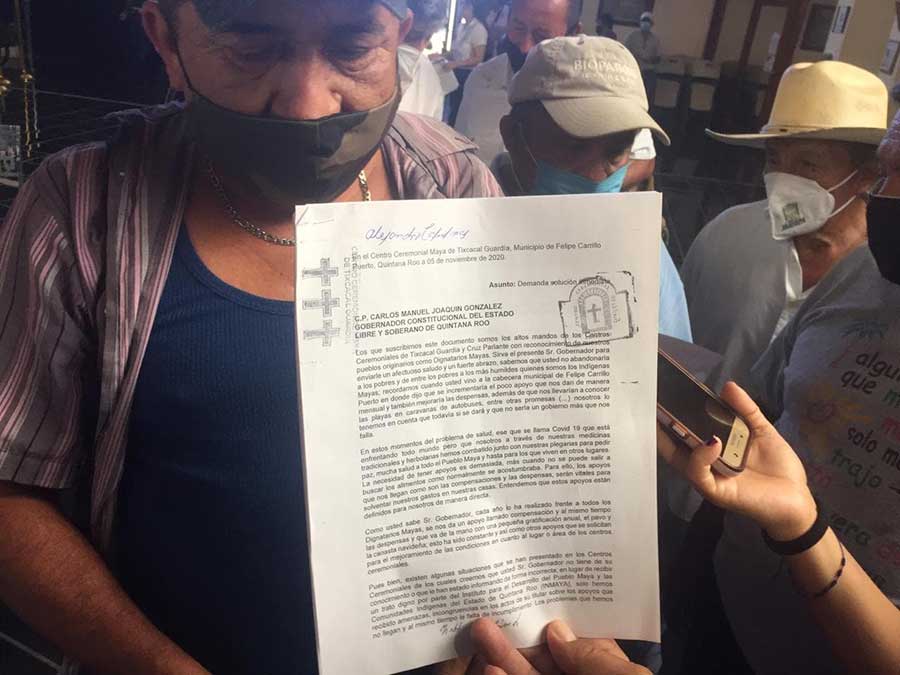 BIOPARQ
Alejandro
En el Centro Ceremonial Maya de Tixcacal Guardia, Municipio de Felipe Carrillo
Puerto, Quintana Roo a 05 de noviembre de 2020.
CENTRO CEREMONIAL
DE TIXCACAL GUARDIA
Asunto: Demanda solución inmediata
C.P. CARLOS MANUEL JOAQUIN GONZALEZ
GOBERNADOR CONSTITUCIONAL DEL ESTADO
LIBRE Y SOBERANO DE QUINTANA ROO
Los que suscribimos este documento somos los altos mandos de los Centros
Ceremoniales de Tixcacal Guardia y Cruz Parlante con reconocimiento de nuestros
pueblos originarios como Dignatarios Mayas. Sirva el presente Sr. Gobernador para
enviarle un afectuoso saludo y un fuerte abrazo, sabemos que usted no abandonaría
a los pobres y de entre los pobres a los más humildes quienes somos los Indígenas
Mayas; recordamos cuando usted vino a la cabecera municipal de Felipe Carrillo
Puerto en donde dijo que se incrementaría el poco apoyo que nos dan de manera
mensual y también mejoraría las despensas, además de que nos llevarían a conocer
las playas en caravanas de autobuses, entre otras promesas (...) nosotros lo
tenemos en cuenta que todavía si se dará y que no sería un gobierno más que nos
falla.
En estos momentos del problema de salud, ese que se llama Covid 19 que está
enfrentando todo mundo pero que nosotros a través de nuestras medicinas
tradicionales y herbolarias hemos combatido junto con nuestras plegarias para pedir
paz, mucha salud a todo el Pueblo Maya y hasta para los que viven en otros lugares.
La necesidad de tener apoyos es demasiada, más cuando no se puede salir a
buscar los alimentos como normalmente se acostumbraba. Para ello, los apoyos
que nos llegan como son las compensaciones y las despensas, serán vitales para
solventar nuestros gastos en nuestras casas. Entendemos que estos apoyos están
definidos para nosotros de manera directa.
Como usted sabe Sr. Gobernador, cada año lo ha realizado frente a todos los
Dignatarios Mayas, se nos da un apoyo llamado compensación y al mismo tiempo
las despensas y que va de la mano con una pequeña gratificación anual, el pavo y
la canasta navideña; esto ha sido constante y así como otros apoyos que se solicitan
para el mejoramiento de las condiciones en cuanto al lugar o área de los centros
ceremoniales.
Pues bien, existen algunas situaciones que se han presentado en los Centros
Ceremoniales de los cuales creemos que usted Sr. Gobernador no tiene de su
conocimiento o que le han estado informando de forma incorrecta; en lugar de recibir
un trato digno por parte del Instituto para el Desarrollo del Pueblo Maya y las
Comunidades Indígenas del Estado de Quintana Roo (INMAYA), solo hemos
recibido amenazas, incongruencias en los actos de su titular sobre los apoyos que
no llegan y al mismo tiempo la falta de incumplimiento. Los problemas que hemos
algu
que
solo
trajo